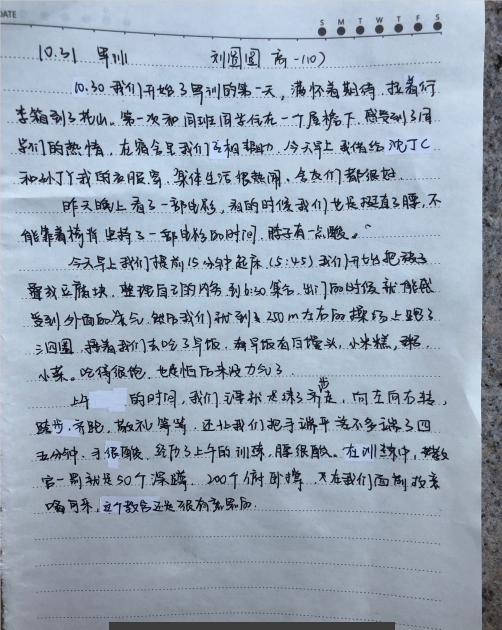 DATE
S M T W T F S
10.31 军训 刘圆圆 高一(10)
10.30我们开始了军训的第一天，满怀着期待，拉着行
李箱到了枕山。第一次和同班同学住在一个屋檐下，感受到了同
学们的热情，在宿舍里我们互相帮助，今天早上我借给沈丁C
和孙丁Y我的衣服穿，集体生活很热闹，舍友们都很好。
昨天晚上看了一部电影，看的时候我们也是挺直了腰，不
能靠着椅背坚持了一部电影的时间，脖子有一点酸。
今天早上我们提前15分钟起床(5:45)我们开始把被子
叠成豆腐块，整理自己的内务到6:30集合，出门的时候就能感
受到外面的冷气，然后我们被到了250m左右的操场上跑了
三四圈，接着我们去吃了早饭，有早饭有白馒头，小米糕，粥，
小菜。吃得很饱，也是怕后来没力气了。
上午 的时间，我们 齐步走，向左向右转，
踏步，齐跑，敬礼等等，还让我们把手端平差不多端了四
五分钟，手很酸，经历了上午的训练，腰很酸。在训练中，教
官一罚就是50个深蹲，200个俯卧撑，
这个教官还是很有意思的。